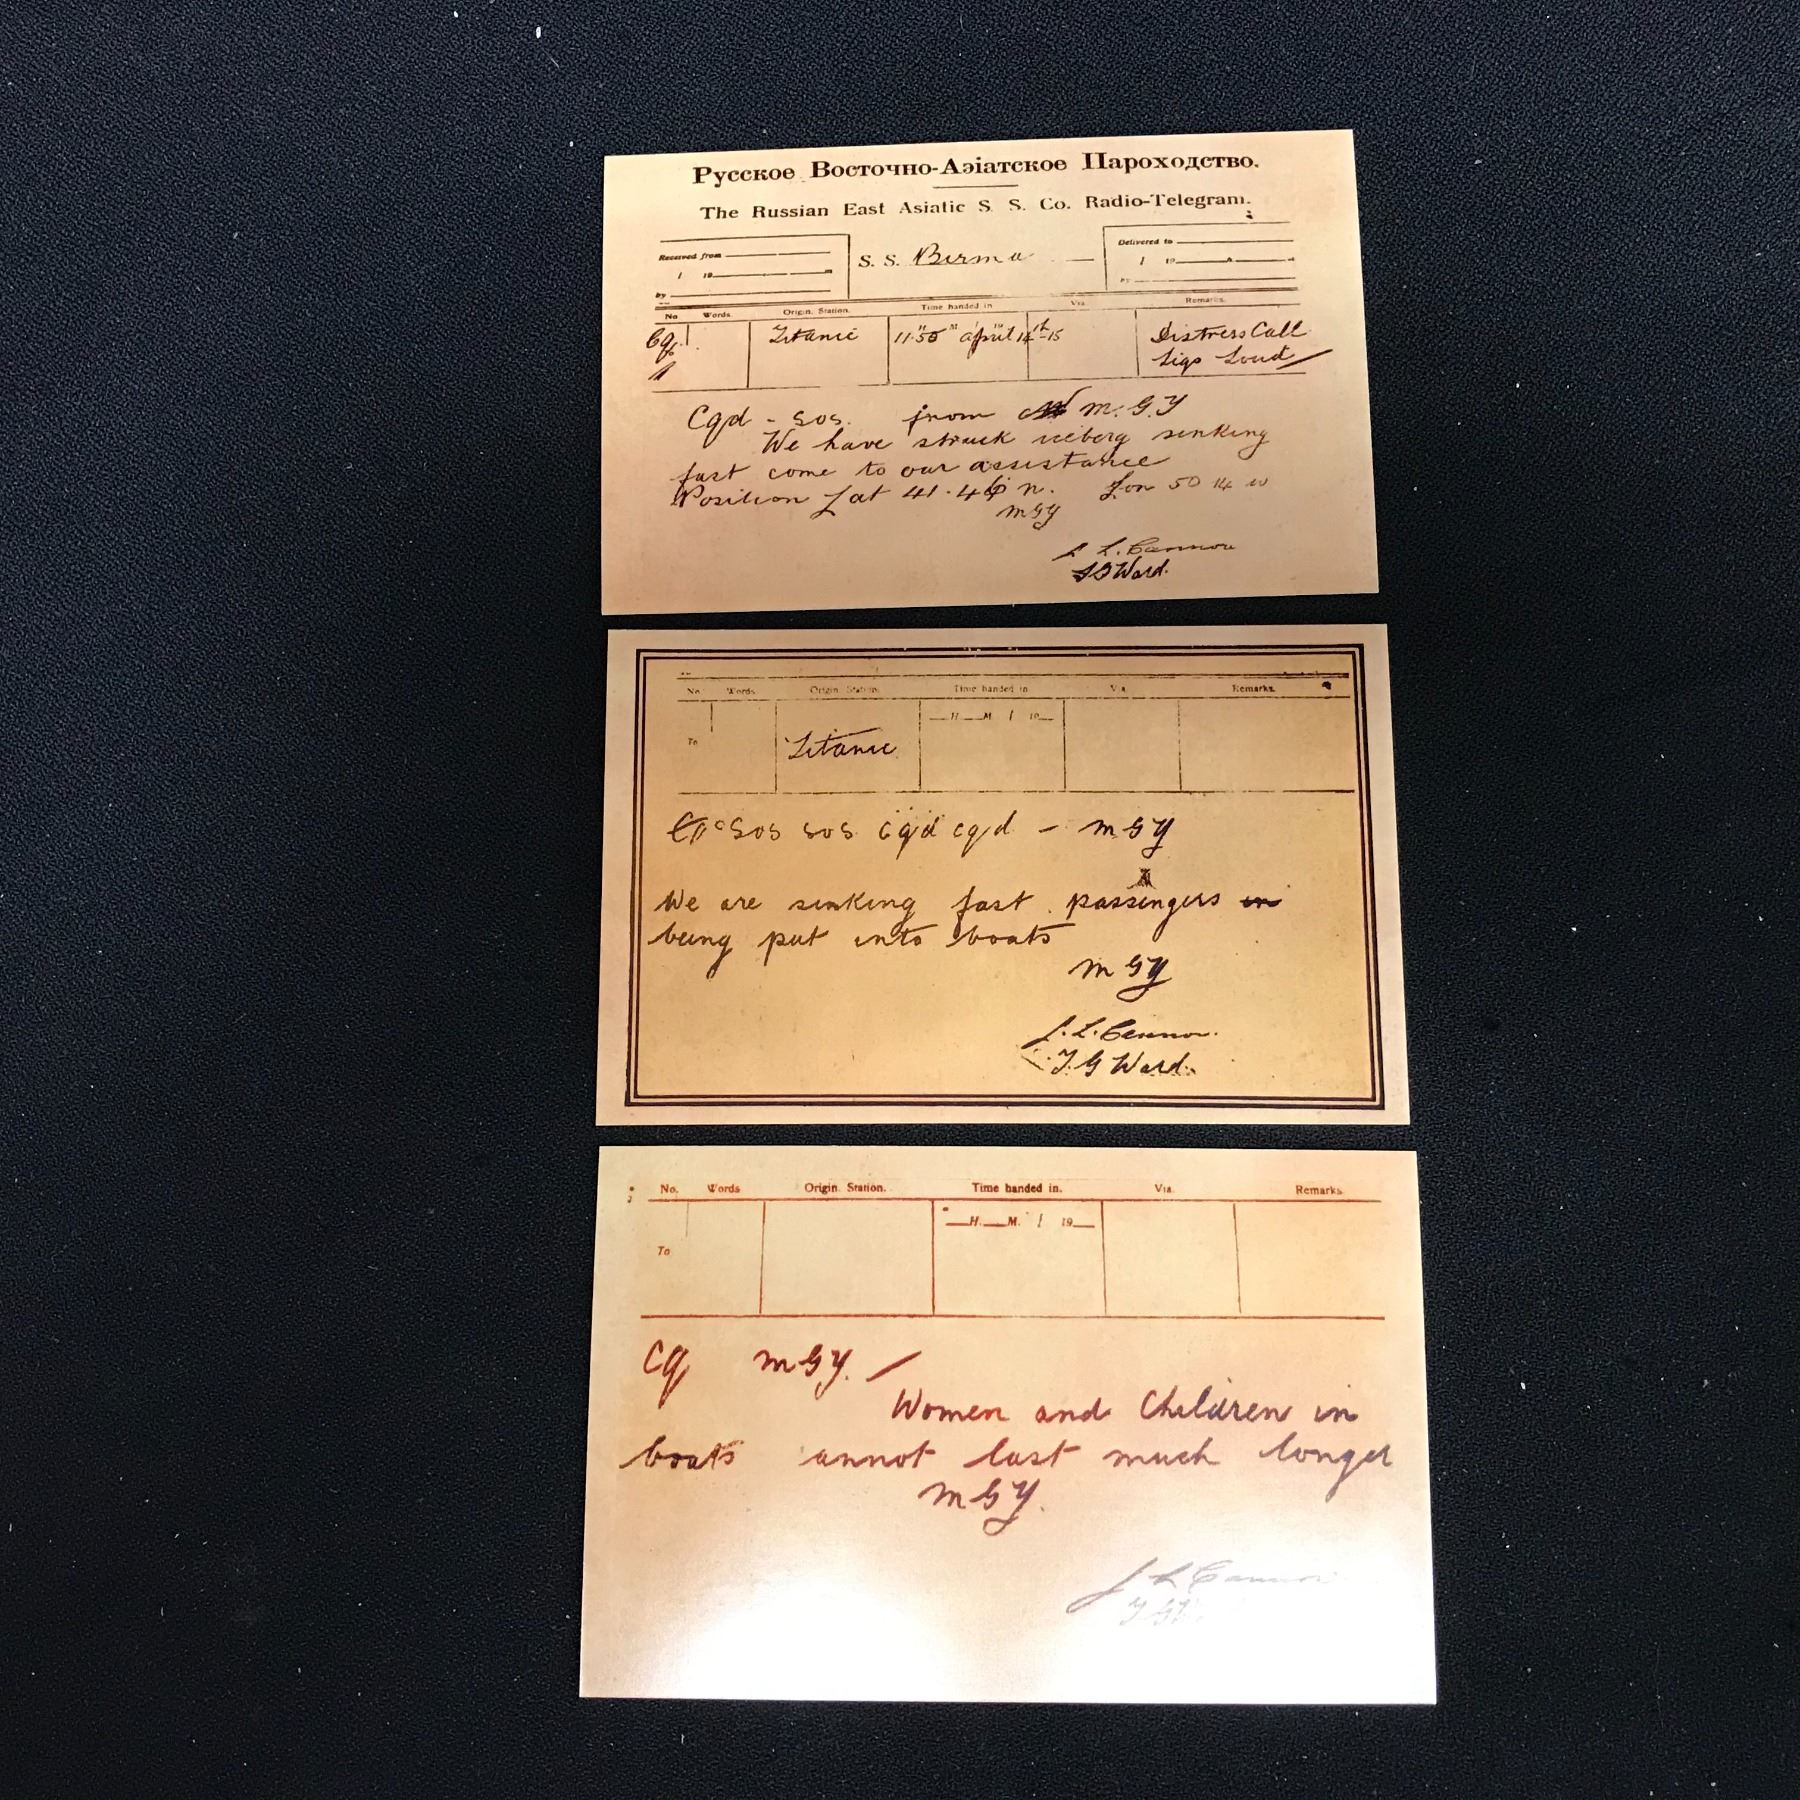 Русское Восточно-Азіатское Пароходство.
The Russian East Asiatic S. S. Co. Radio-Telegram.
Received from
1 19 m
by
S. S. Birma
Delivered to
1 19
by
No Words. Origin. Station. Time handed in Via Remarks.
Cq. Titanic 11.50 H M april 14th-15 Distress Call
Sigs Loud
Cqd - SOS. from M.G.Y
We have struck iceberg sinking
fast come to our assistance
Position Lat 41.46 n. Lon 50 14 w
MGY
J. L. Cannon
T G Ward.
No Words. Origin. Station. Time handed in Via Remarks.
H M / 19
To Titanic
SOS SOS cqd cqd - MGY
We are sinking fast passengers in
being put into boats
MGY
J. L. Cannon.
T G Ward.
No. Words Origin. Station. Time handed in. Via. Remarks.
H. M. / 19
To
Cq MGY.
Women and Children in
boats annot last much longer
MGY.
J L Cannon